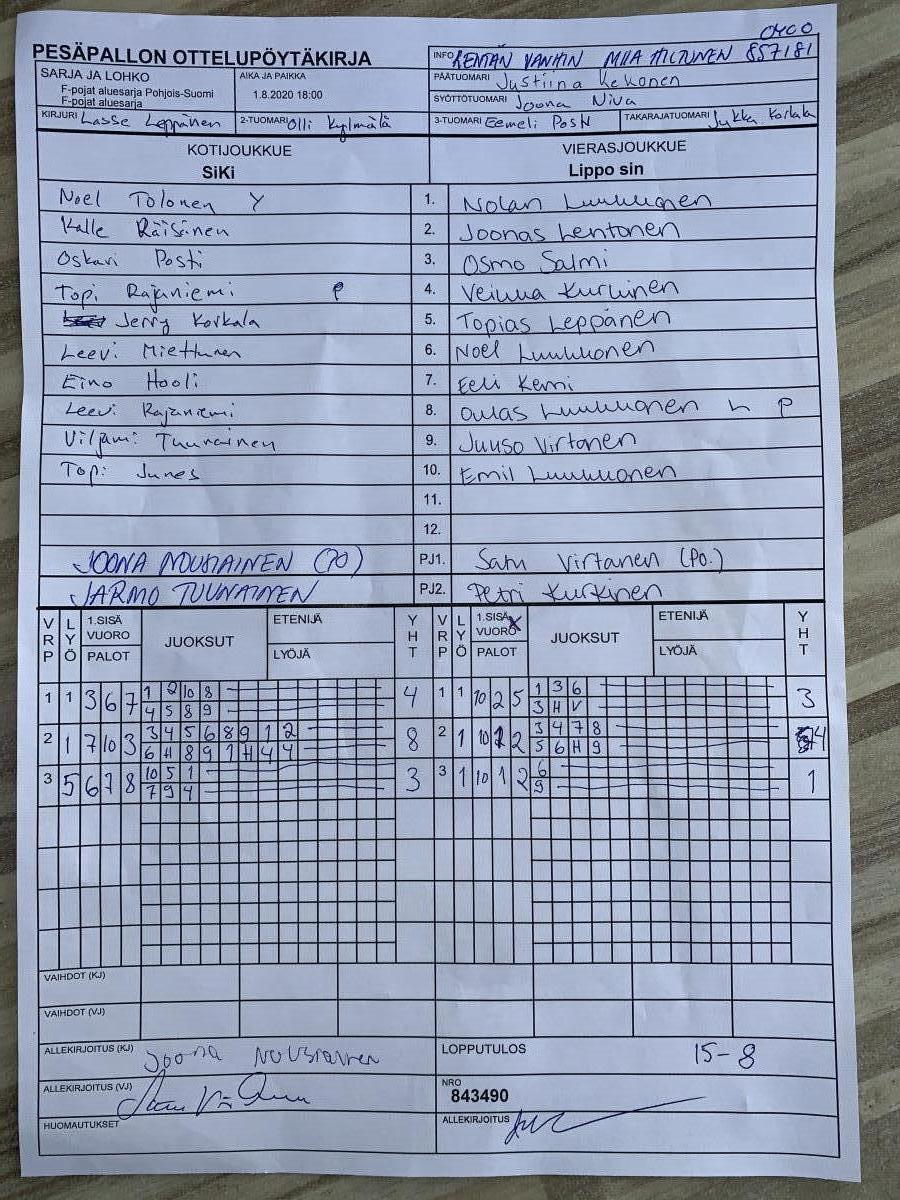 OKCO
PESÄPALLON OTTELUPÖYTÄKIRJA
INFO KENTÄN VANHIN MIIA HILTUNEN 857181
SARJA JA LOHKO
F-pojat aluesarja Pohjois-Suomi
F-pojat aluesarja
AIKA JA PAIKKA
1.8.2020 18:00
PÄÄTUOMARI Justiina Kekonen
SYÖTTÖTUOMARI Joona Niva
KIRJURI Lasse Leppänen 2-TUOMARI Olli Kylmälä 3-TUOMARI Eemeli Posti TAKARAJATUOMARI Jukka Korkala
KOTIJOUKKUE VIERASJOUKKUE
SiKi Lippo sin
Noel Tolonen Y 1. Nolan Luukkonen
Kalle Räisänen 2. Joonas Lentonen
Oskari Posti 3. Osmo Salmi
Topi Rajaniemi P 4. Veikka Kurkinen
Jerry Korkala 5. Topias Leppänen
Leevi Miettunen 6. Noel Luukkonen
Eino Hooli 7. Eeli Kemi
Leevi Rajaniemi 8. Oulas Luukkonen L P
Viljami Tuunainen 9. Juuso Virtanen
Topi Junes 10. Emil Luukkonen
11.
12.
JOONA NOUSIAINEN (PO) PJ1. Satu Virtanen (Po.)
JARMO TUUNAINEN PJ2. Petri Kurkinen
VRP LYÖ 1.SISÄ VUORO PALOT JUOKSUT ETENIJÄ LYÖJÄ YHT VRP LYÖ 1.SISÄ VUORO X PALOT JUOKSUT ETENIJÄ LYÖJÄ YHT
1 1 3 6 7 1 2 10 8 4 1 1 10 2 5 1 3 6 3
4 5 8 9 3 H V
2 1 7 10 3 3 4 5 6 8 9 1 2 8 2 1 10 2 3 4 7 8 4
6 H 8 9 1 H 4 4 5 6 H 9
3 5 6 7 8 10 5 1 3 3 1 10 1 2 6 1
7 9 4 9
VAIHDOT (KJ)
VAIHDOT (VJ)
ALLEKIRJOITUS (KJ) Joona Nousiainen LOPPUTULOS 15-8
ALLEKIRJOITUS (VJ) NRO
843490
HUOMAUTUKSET ALLEKIRJOITUS